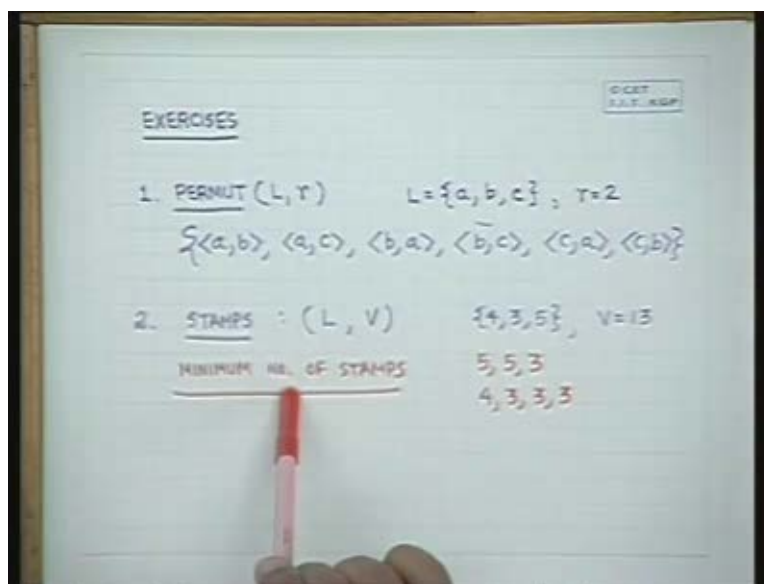 © CET
I.I.T. KGP
EXERCISES
1. PERMUT (L, r) L = {a, b, c}, r=2
{<a,b>, <a,c>, <b,a>, <b,c>, <c,a>, <c,b>}
2. STAMPS : (L, V) {4,3,5}, V=13
MINIMUM NO. OF STAMPS 5, 5, 3
4, 3, 3, 3